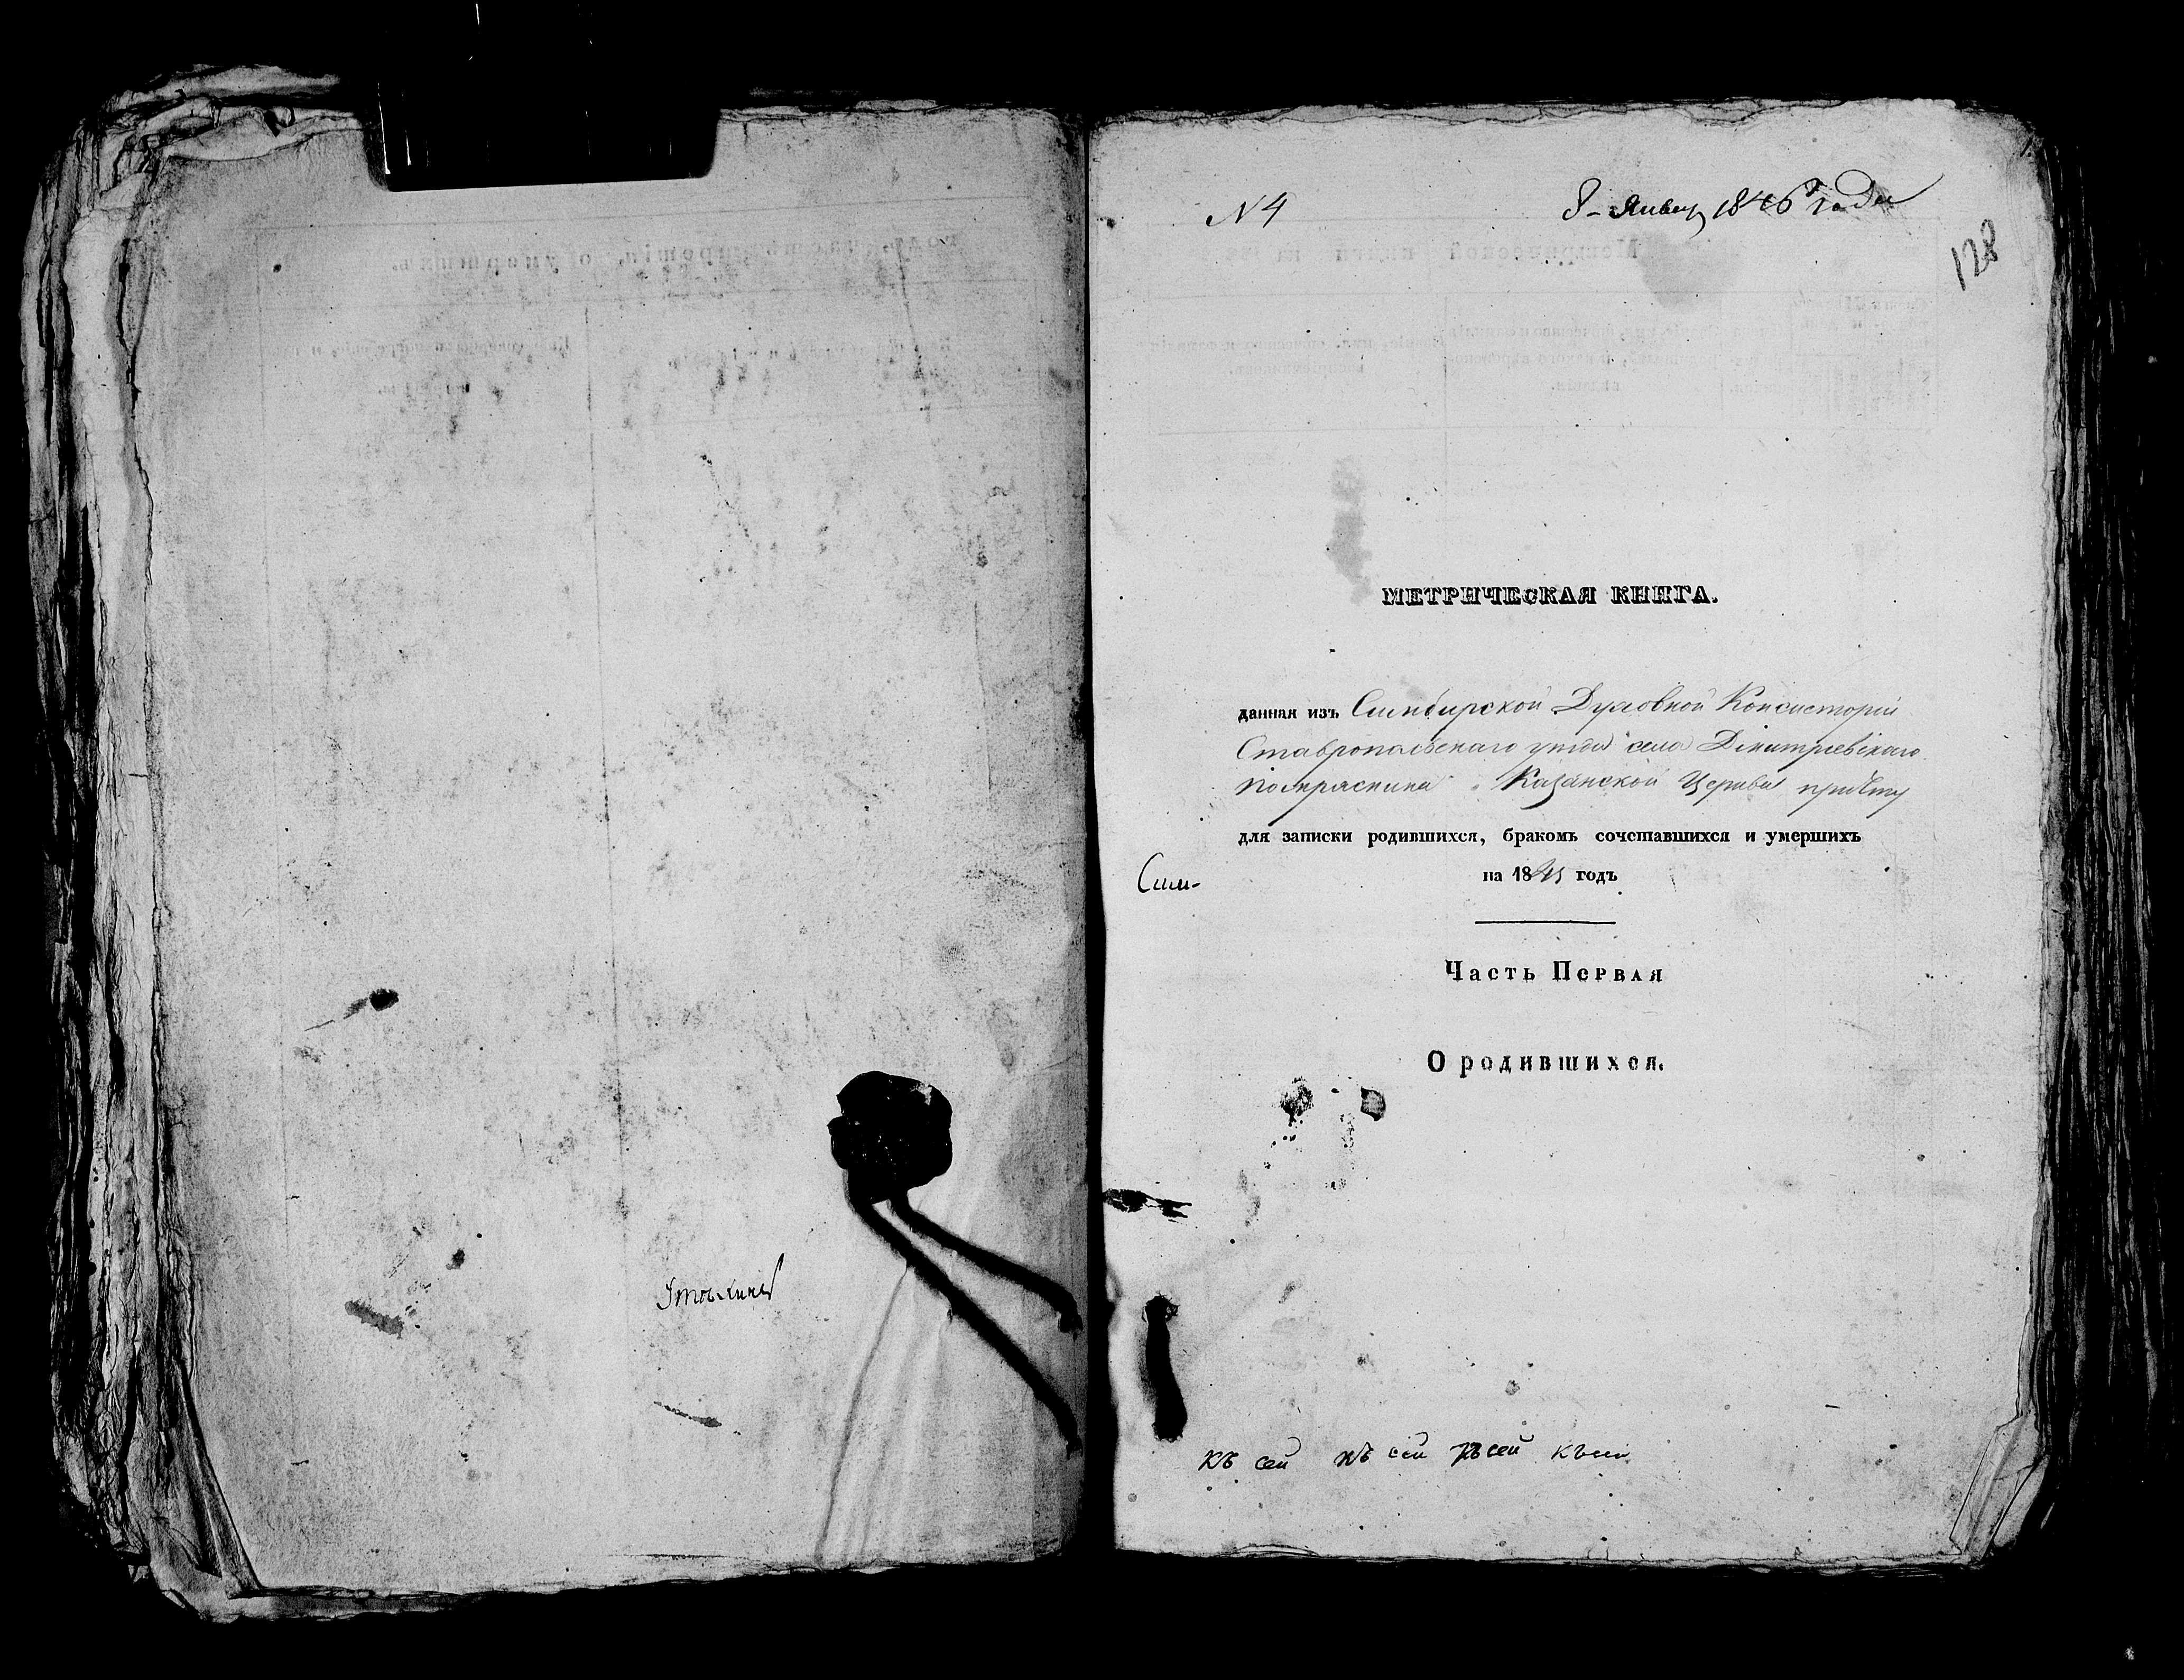 N 4
8 - Январ 1846 года
128
МЕТРИЧЕСКАЯ КНИГА.
данная изъ Симбирской Духовной Консисторіи
Ставропольскаго уезда села Дімитріевскаго
Помряскина Казанской Церкви причту
для записки родившихся, бракомъ сочетавшихся и умершихъ
Сим-
на 1845 годъ
Часть Первая
О родившихся.
къ сей къ сей къ сей къ сей